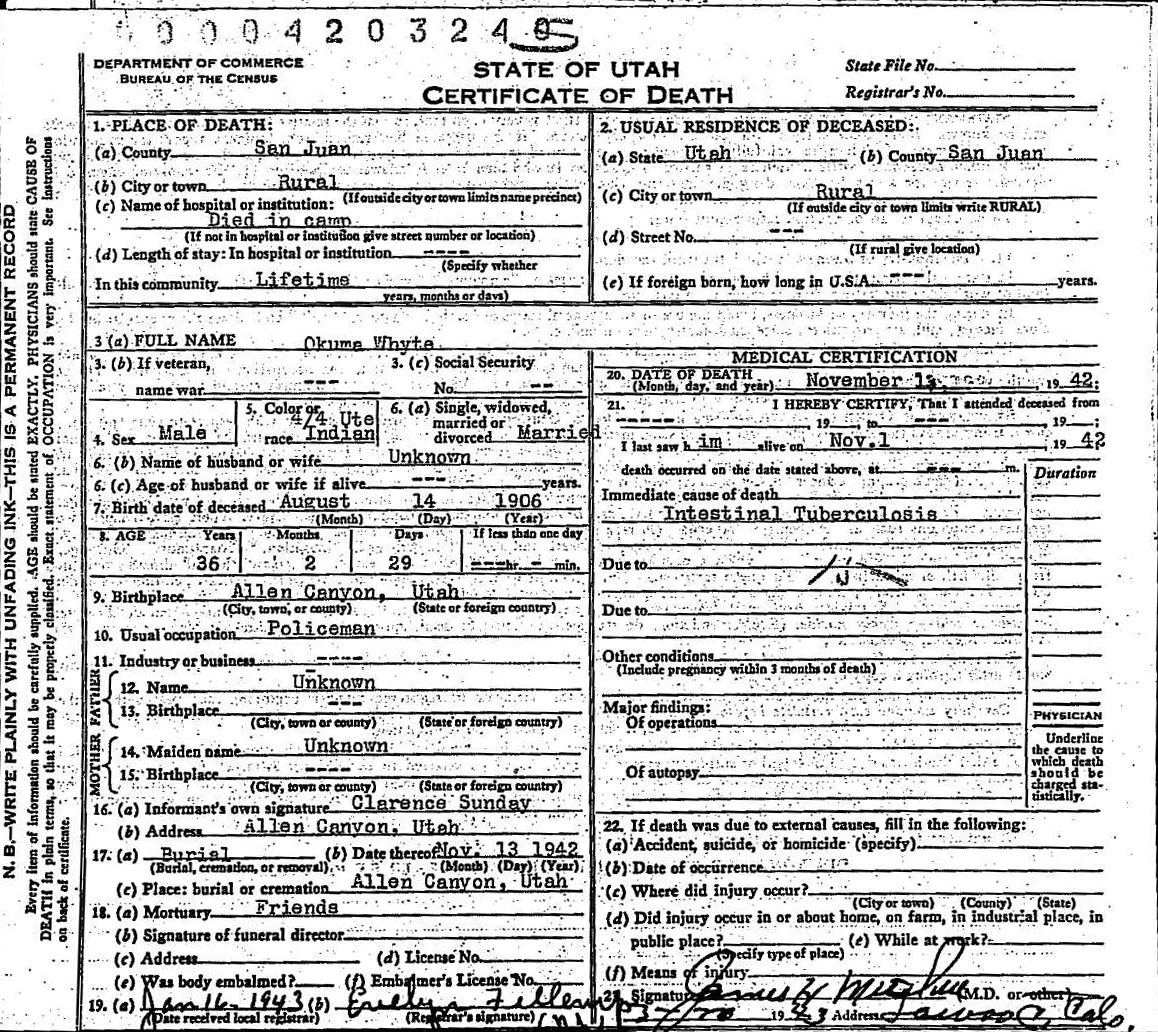 0 0 0 0 4 2 0 3 2 4
DEPARTMENT OF COMMERCE
BUREAU OF THE CENSUS
STATE OF UTAH
CERTIFICATE OF DEATH
State File No.
Registrar's No.
N. B.—WRITE PLAINLY WITH UNFADING INK—THIS IS A PERMANENT RECORD
Every item of information should be carefully supplied. AGE should be stated EXACTLY. PHYSICIANS should state CAUSE OF
DEATH in plain terms, so that it may be properly classified. Exact statement of OCCUPATION is very important. See instructions
on back of certificate.
1. PLACE OF DEATH:
(a) County San Juan
(b) City or town Rural
(If outside city or town limits name precinct)
(c) Name of hospital or institution:
Died in camp
(If not in hospital or institution give street number or location)
(d) Length of stay: In hospital or institution ----
(Specify whether
In this community Lifetime
years, months or days)
2. USUAL RESIDENCE OF DECEASED:
(a) State Utah (b) County San Juan
(c) City or town Rural
(If outside city or town limits write RURAL)
(d) Street No. ---
(If rural give location)
(e) If foreign born, how long in U.S.A. --- years.
3 (a) FULL NAME Okuma Whyte
3. (b) If veteran,
name war ---
3. (c) Social Security
No. --
4. Sex Male
5. Color or
race 4/4 Ute
Indian
6. (a) Single, widowed,
married or
divorced Married
6. (b) Name of husband or wife Unknown
6. (c) Age of husband or wife if alive --- years.
7. Birth date of deceased August 14 1906
(Month) (Day) (Year)
8. AGE Years Months Days If less than one day
36 2 29 --- hr. - min.
9. Birthplace Allen Canyon, Utah
(City, town, or county) (State or foreign country)
10. Usual occupation Policeman
11. Industry or business ----
FATHER
12. Name Unknown
13. Birthplace ---
(City, town or county) (State or foreign country)
MOTHER
14. Maiden name Unknown
15. Birthplace ----
(City, town or county) (State or foreign country)
16. (a) Informant's own signature Clarence Sunday
(b) Address Allen Canyon, Utah
17. (a) Burial (b) Date thereof Nov. 13 1942
(Burial, cremation, or removal) (Month) (Day) (Year)
(c) Place: burial or cremation Allen Canyon, Utah
18. (a) Mortuary Friends
(b) Signature of funeral director
(c) Address (d) License No.
(e) Was body embalmed? (f) Embalmer's License No.
19. (a) Jan 16 - 1943 (b)
(Date received local registrar) (Registrar's signature)
MEDICAL CERTIFICATION
20. DATE OF DEATH
(Month, day, and year) November 13, 1942;
21. I HEREBY CERTIFY, That I attended deceased from
-----, 19 --, to ---, 19 --;
I last saw h im alive on Nov. 1, 19 42
death occurred on the date stated above, at --- m.
Duration
Immediate cause of death
Intestinal Tuberculosis
Due to
Due to
Other conditions
(Include pregnancy within 3 months of death)
Major findings:
Of operations
Of autopsy
PHYSICIAN
Underline
the cause to
which death
should be
charged sta-
tistically.
22. If death was due to external causes, fill in the following:
(a) Accident, suicide, or homicide (specify)
(b) Date of occurrence
(c) Where did injury occur?
(City or town) (County) (State)
(d) Did injury occur in or about home, on farm, in industrial place, in
public place? (e) While at work?
(Specify type of place)
(f) Means of injury
Signature (M.D. or other)
1943 Address